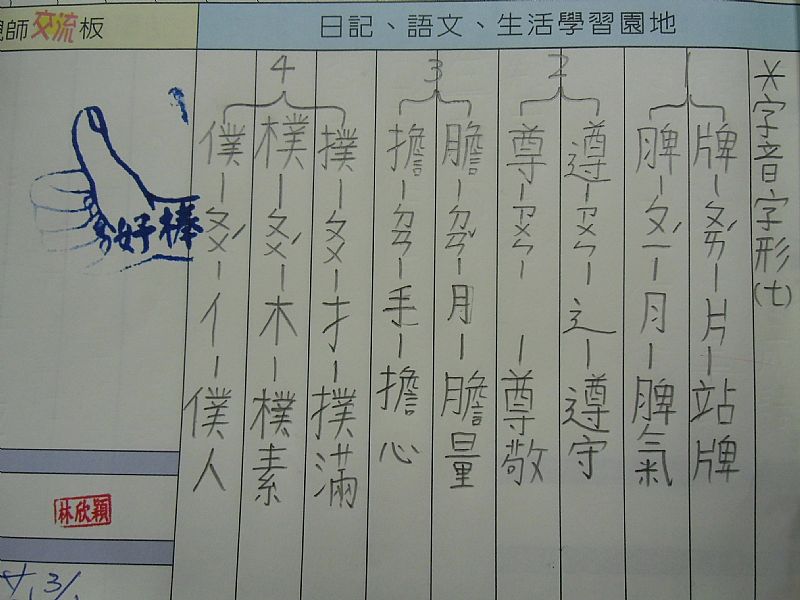 日記、語文、生活學習園地
師交流板
*字音字形(七)
1
牌-ㄆㄞˊ-片-站牌
脾-ㄆㄧˊ-月-脾氣
2
遵-ㄗㄨㄣ-辶-遵守
尊-ㄗㄨㄣ- -尊敬
3
膽-ㄉㄢˇ-月-膽量
擔-ㄉㄢ-手-擔心
4
撲-ㄆㄨ-扌-撲滿
樸-ㄆㄨˊ-木-樸素
僕-ㄆㄨˊ-亻-僕人
好棒
林欣穎